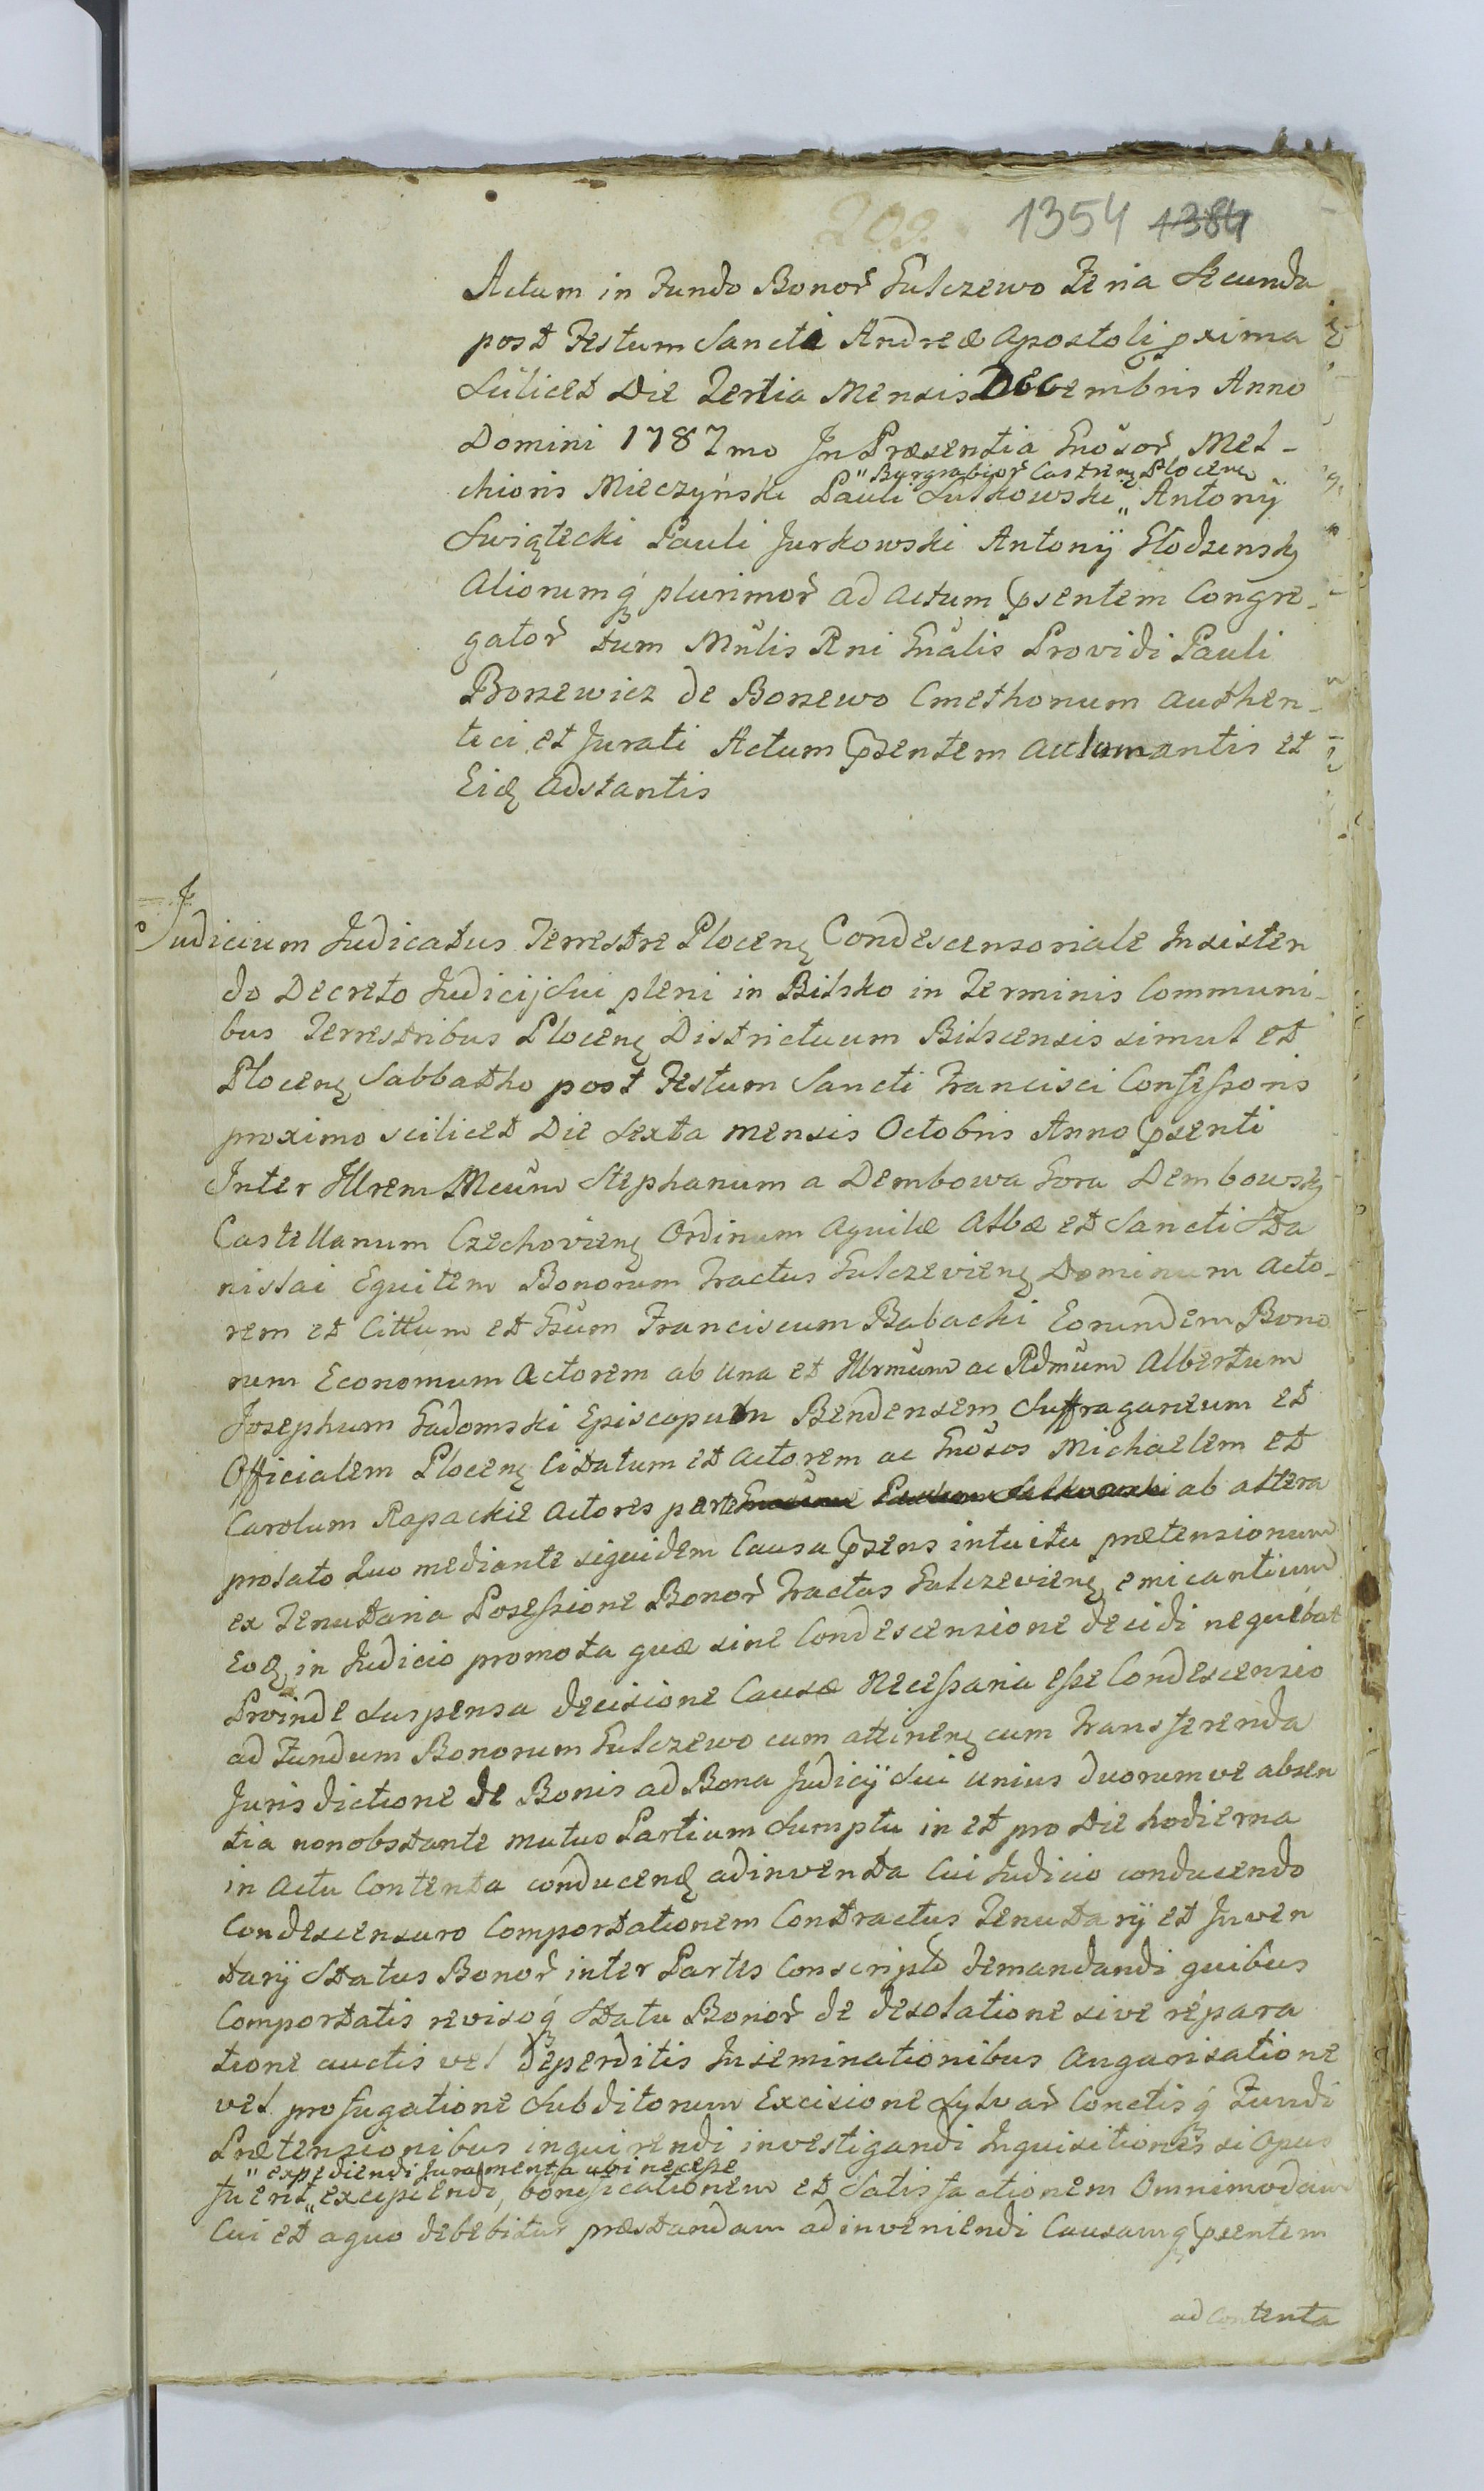 209. 1354 1384
Actum in Fundo Bonor̃ Gulczewo Feria Secunda
post Festum Sancti Andreæ Apostoli pxima
Scilicet Die Tertia Mensis Decembris Anno
Domini 1787mo In Præsentia Gnõsor̃ Mel-
" Burgrabior̃ Castreñ Ploceñ
chioris Mieczyński Pauli Sulkowski " Antonij
Swiątecki Pauli Jurkowski Antonij
Aliorumq̃ plurimor̃ ad Actum psentem Congre-
gator̃ tum Mnlis Rni Gnalis Providi Pauli
Bonewicz de Bonewo Cmethonum authen-
tici et Jurati Actum psentem aclamantis et
Eid̃ adstantis
Judicium Judicatus Terrestre Ploceñ Condescensoriale Insisten
do Decreto Judicij Sui pleni in Bilsko in Terminis Communi-
bus Terrestribus Ploceñ Districtuum Bilscensis simul et
Ploceñ Sabbatho post Festum Sancti Francisci Confessoris
proximo scilicet Die Sexta mensis Octobris Anno psenti
Inter Illrem Mcum Stephanum a Dembowa Gora Dembowsky
Castellanum Czechovieñ Ordinum Aquilæ Albæ et Sancti Sta
nislai Equitem Bonorum Tractus Gulczevieñ Dominum Acto-
rem et Cittum et Gsum Franciscum Babacki Eorundem Bono
rum Economum Actorem ab una et Illrmum ac Rdmum Albertum
Josephum Gadomski Episcopum Bendensem Suffraganeum et
Officialem Ploceñ Citatum et Actorem ac Gnõsos Michaelem et
Carolum Rapackie Actores parte ab altera
prolato Suo mediante siquidem Causa psens intuitu prætensionum
ex Tenutaria Possessione Bonor̃ Tractus Gulczevieñ emicantium
Eod̃ in Judicio promota quæ sine Condescensione decidi nequibat
Proinde Suspensa decisione Causæ Necessaria esse Condescensio
ad Fundum Bonorum Gulczewo cum attineñ cum Transferenda
Jurisdictione de Bonis ad Bona Judicij Sui unius duorumve absen
tia nonobstante mutuo Partium Sumptu in et pro die hodierna
in Actu Contenta conduceñ adinventa Cui Judicio conducendo
Condescensuro Comportationem Contractus Tenutarij et Inven
tarij Status Bonor̃ inter Partes Conscript demandandi quibus
Comportatis revisoq̃ Statu Bonor̃ de desolatione sive répara
tione auctis vel deperditis Inseminationibus Angarisatione
vel profugatione Subditorum Excisione Sylvar̃ Conctisq̃ Fundi
Prætensionibus inquirendi investigandi Inquisitiones si Opus
" expediendi Juramenta ubi necesse
fuerit " excipiendi, bonificationem et Satisfactionem Omnimodam
Cui et aquo debebitur præstandam adinveniendi Causamq̃ psentem
ad contenta